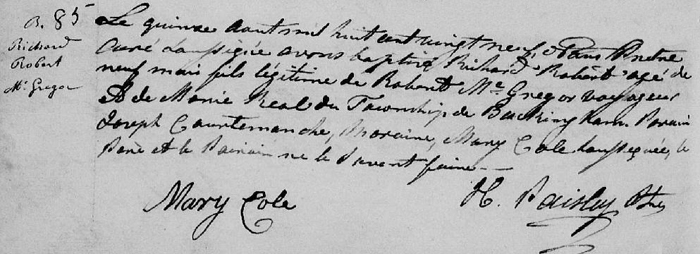 B. 85
Richard
Robert
Mc Gregor
Le quinze aout mil huit cent vingt neuf, Nous Pretre
Curé soussigné avons baptisé Richard Robert agé de
neuf mois fils légitime de Robert Mc Gregor voyageur
Et de Marie Real du Township de Buckingham. Parain
Joseph Courtemanche, Maraine, Mary Cole soussignée, le
Pere et le Parain ne le savent faire
Mary Cole
H. Paisley Ptre